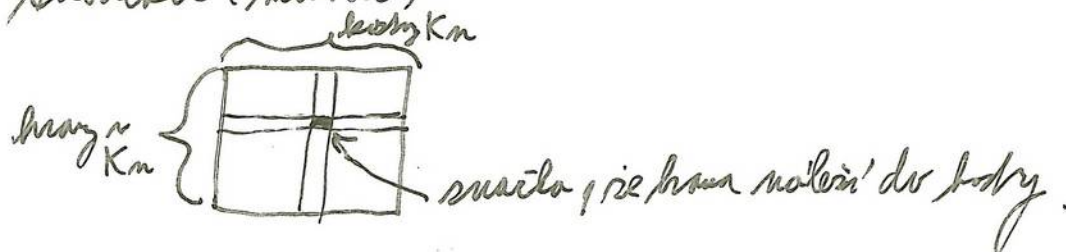 kostry Kn
hrany v
Kn
značka, že hrana náleží do kostry.